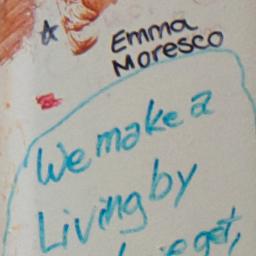 Emma
Moresco
We make a
Living by
get,